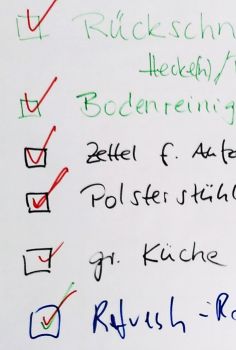 Rückschn
Hecke(n)/
Bodenreinig
Zettel f.
Polsterstühl
gr. Küche
Refresh - Ra